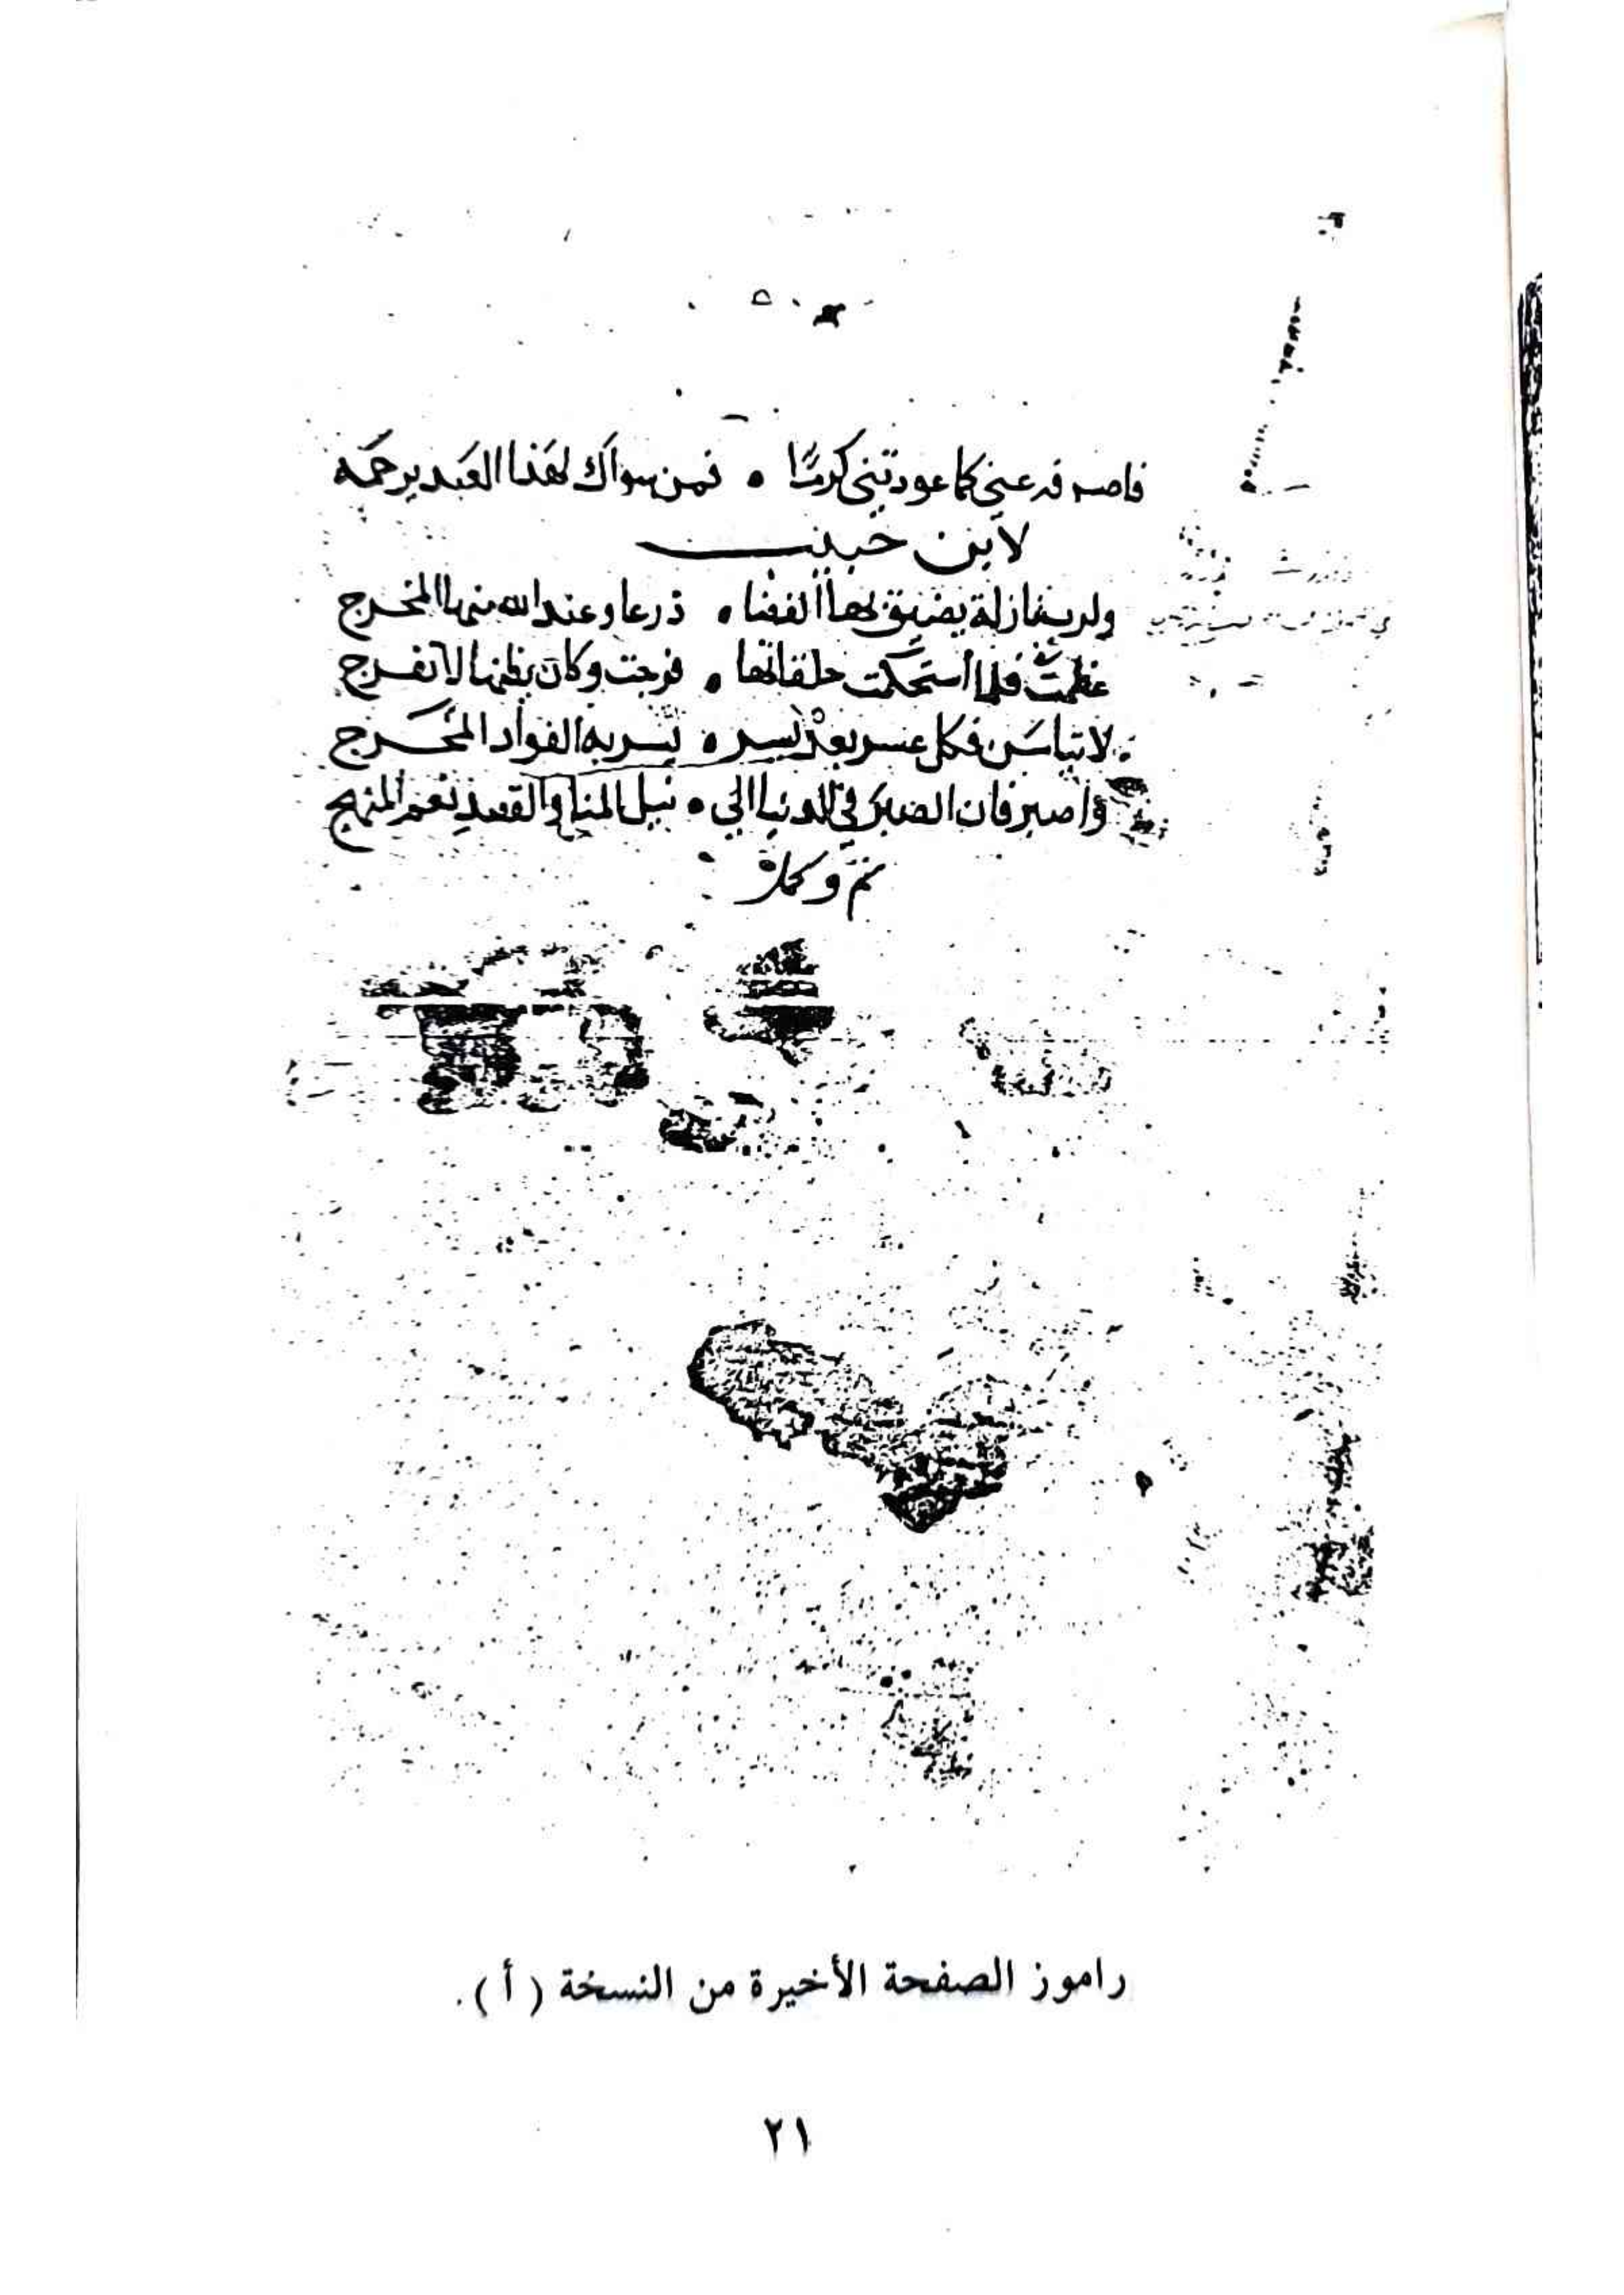 فاصرفه عني كما عودتني كرمًا • فمن سواك لهذا العبد يرحمه
لابن حبيب
ولرب نازلة يضيق بها الفضا • ذرعا وعند الله منها المخرج
عظمت فلما استحكمت حلقاتها • فرجت وكان يظنها لا تفرج
لا تيأسن فكل عسر بعده يسر • يسر به الفؤاد المحرج
واصبر فان الصبر في الدنيا الى • نيل المنا والقصد نعم المنهج
تم وكمل
راموز الصفحة الأخيرة من النسخة ( أ ) .
٢١